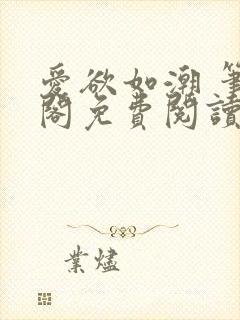 愛欲如潮 筆
閣免費閱讀
業燼